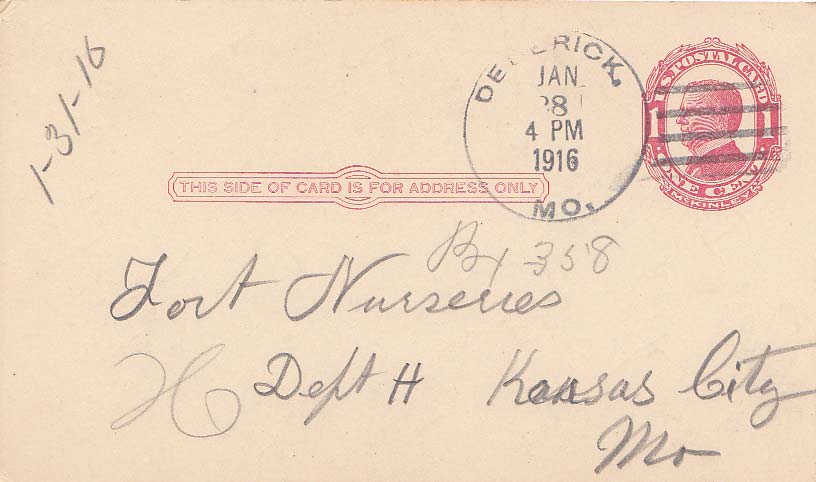 1-31-16
DEDERICK,
JAN
28
4 PM
1916
MO.
U.S. POSTAL CARD
1 1
ONE CENT
McKINLEY
THIS SIDE OF CARD IS FOR ADDRESS ONLY
Bx 358
Fort Nurseries
H Dept H Kansas City
Mo